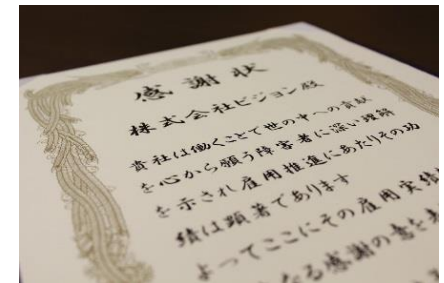 感謝状
株式会社ビジョン殿
貴社は働くことで世の中への貢献
を心から願う障害者に深い理解
を示され雇用推進にあたりその功
績は顕著であります
よってここにその雇用実績
なる感謝の意を